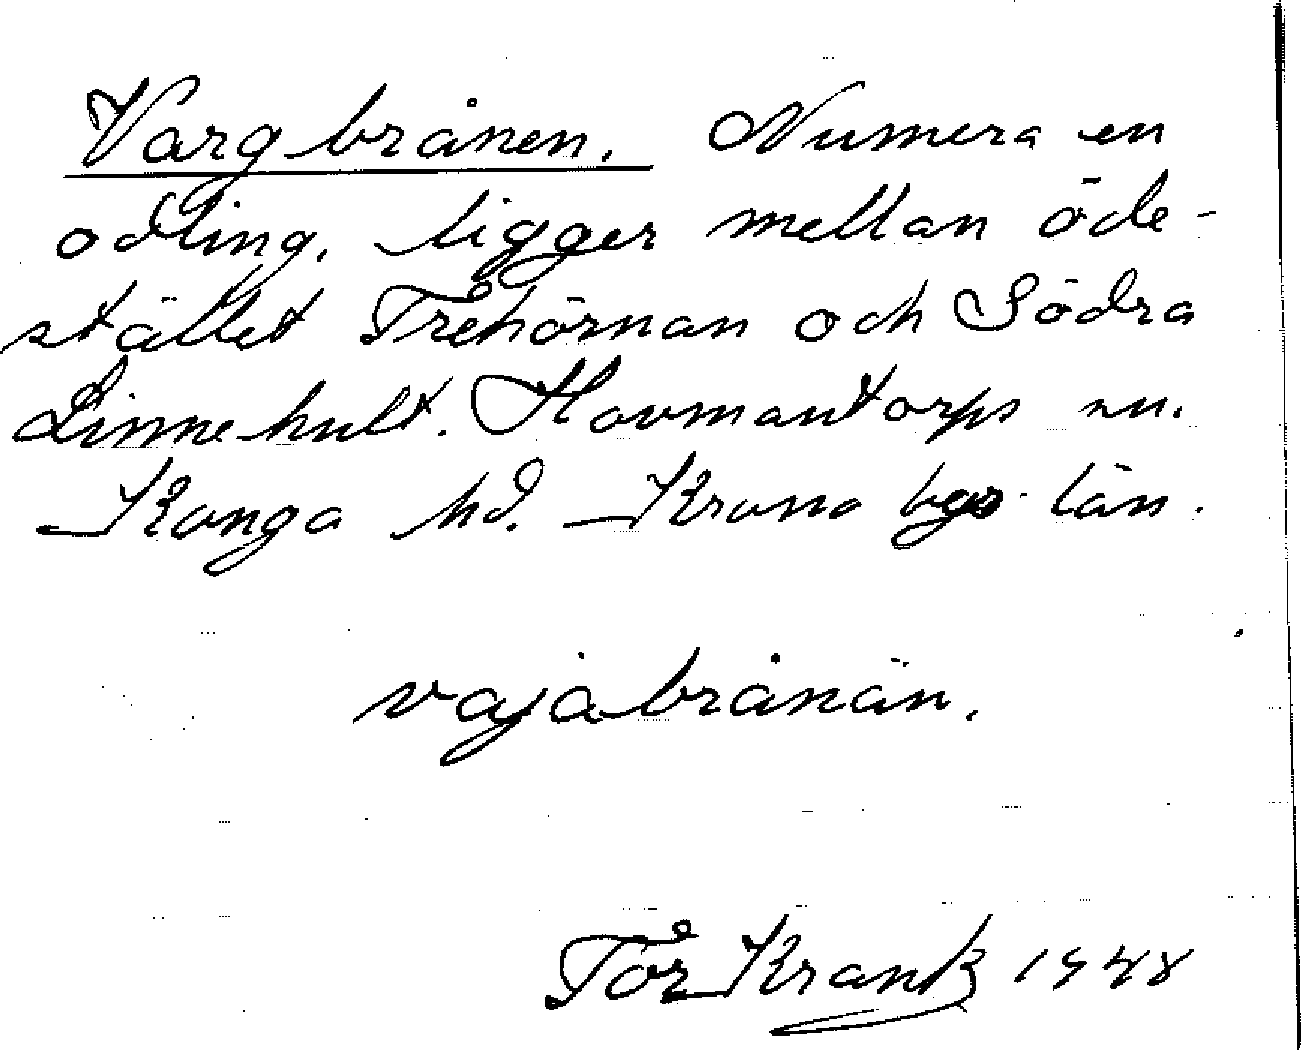 Vargbrånen. Numera en
odling, ligger mellan öde-
stället Trehörnan och Södra
Linnehult. Hovmantorps sn.
Konga hd. Kronobgs län.
vajabrånän.
Tor Krank 1948